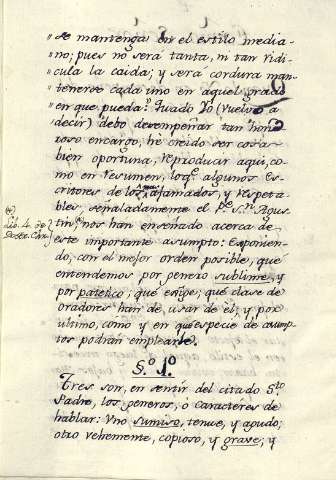 „ se mantenga en el estilo media-
„ no; pues no será tanta, ni tan ridi-
„ cula la caida; y será cordura man-
„ tenerse cada uno en aquel grado
„ en que pueda.
Yo (vuelvo a
decir) debo desempeñar tan hon-
roso encargo, he creido ser cosa
bien oportuna, reproducir aqui, co-
mo en resumen, lo q.e algunos Es-
critores de los mas afamados, y respeta-
bles, señaladamente el P.e S.n Agus-
tin, (*) nos han enseñado acerca de
este importante asumpto: Exponien-
do, con el mejor orden posible, que
entendemos por genero sublime, y
por patetico; què exige; què clase de
oradores han de usar de èl; y por
ultimo, como y en què especie de asump-
tos podrán emplearle.
(*)
lib. 4. de
Doctr. Chr.
§.o 1.o
Tres son, en sentir del citado S.to
Padre, los generos, ò caracteres de
hablar: Uno sumiso, tenue, y agudo;
otro vehemente, copioso, y grave; y